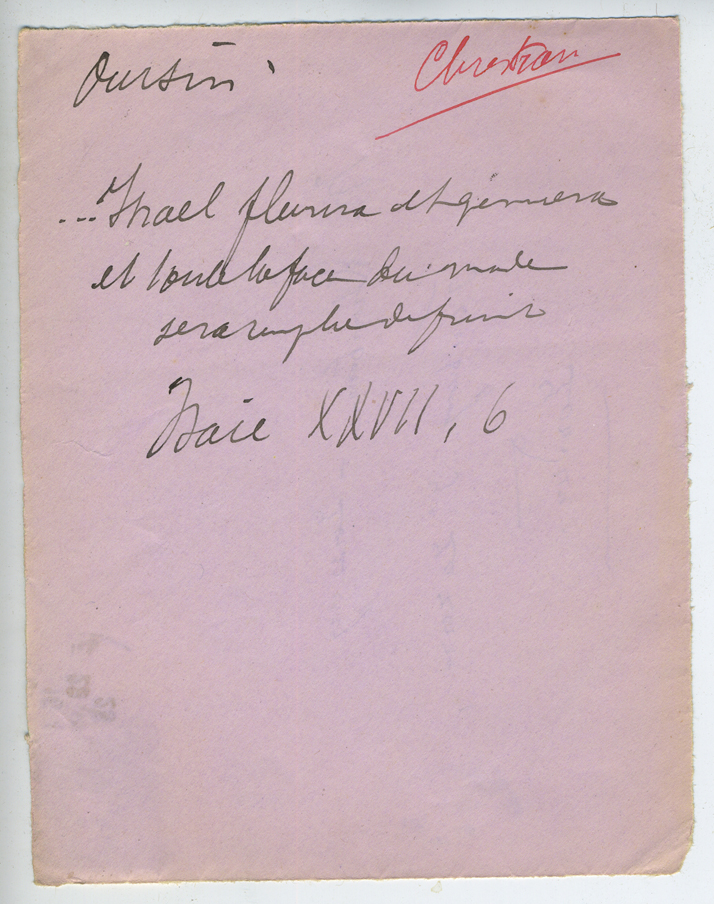 Oursin
Christian
...Israel fleurira et germera
et toute la face du monde
sera remplie de fruit
Isaïe XXVII, 6